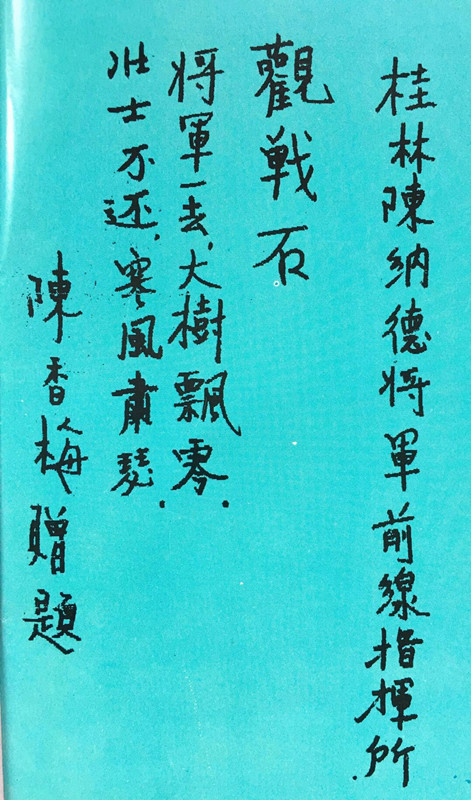 桂林陳纳德将軍前線指揮所.
觀戦石
将軍一去,大樹飄零.
壮士不还,寒風肅瑟.
陳香梅贈題